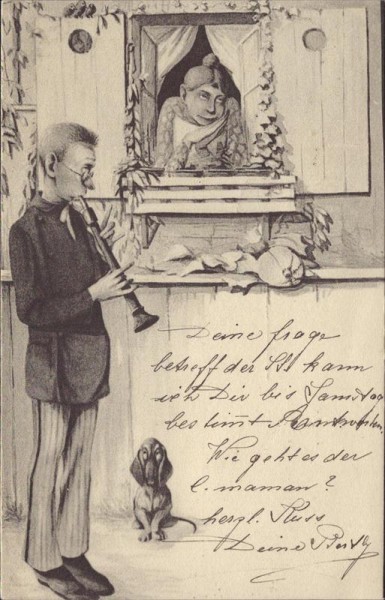 Deine frage
betreff der Ste kann
ich Dir bis Samstag
bestimt Antworten.
Wie geht es der
l. maman?
herzl. Kuss
Deine